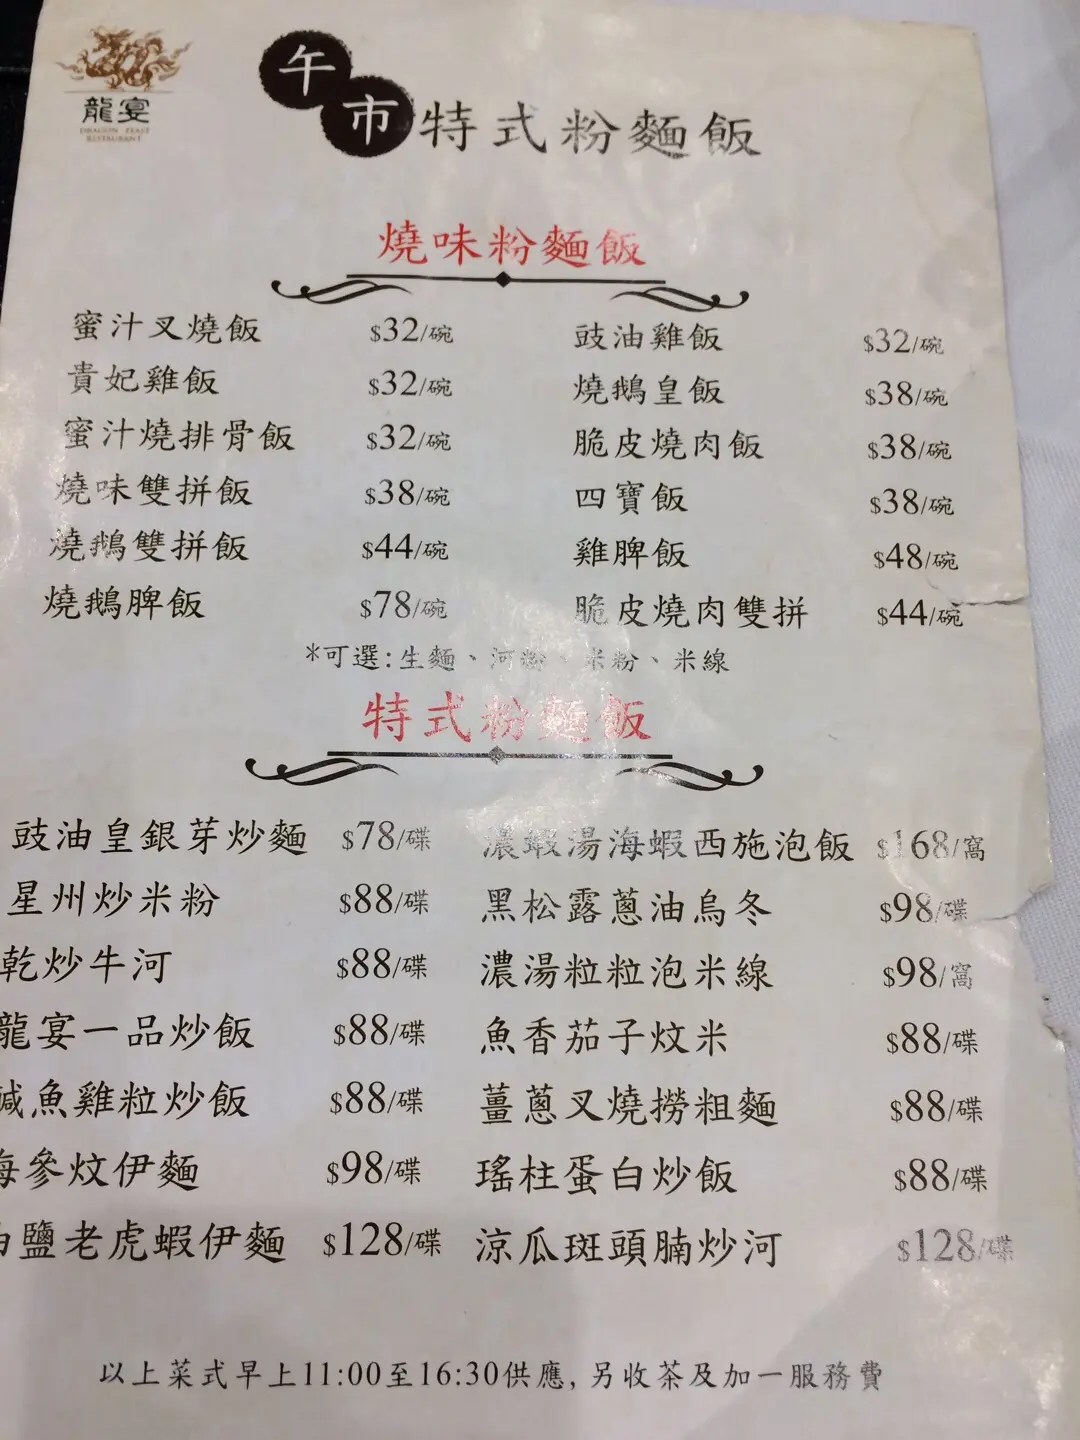 龍宴
DRAGON FEAST
RESTAURANT
午市特式粉麵飯
燒味粉麵飯
蜜汁叉燒飯 $32/碗 豉油雞飯 $32/碗
貴妃雞飯 $32/碗 燒鵝皇飯 $38/碗
蜜汁燒排骨飯 $32/碗 脆皮燒肉飯 $38/碗
燒味雙拼飯 $38/碗 四寶飯 $38/碗
燒鵝雙拼飯 $44/碗 雞脾飯 $48/碗
燒鵝脾飯 $78/碗 脆皮燒肉雙拼 $44/碗
*可選:生麵、河粉、米粉、米線
特式粉麵飯
豉油皇銀芽炒麵 $78/碟 濃蝦湯海蝦西施泡飯 $168/窩
星州炒米粉 $88/碟 黑松露蔥油烏冬 $98/碟
乾炒牛河 $88/碟 濃湯粒粒泡米線 $98/窩
龍宴一品炒飯 $88/碟 魚香茄子炆米 $88/碟
鹹魚雞粒炒飯 $88/碟 薑蔥叉燒撈粗麵 $88/碟
海參炆伊麵 $98/碟 瑤柱蛋白炒飯 $88/碟
鹽老虎蝦伊麵 $128/碟 涼瓜斑頭腩炒河 $128/碟
以上菜式早上11:00至16:30供應, 另收茶及加一服務費